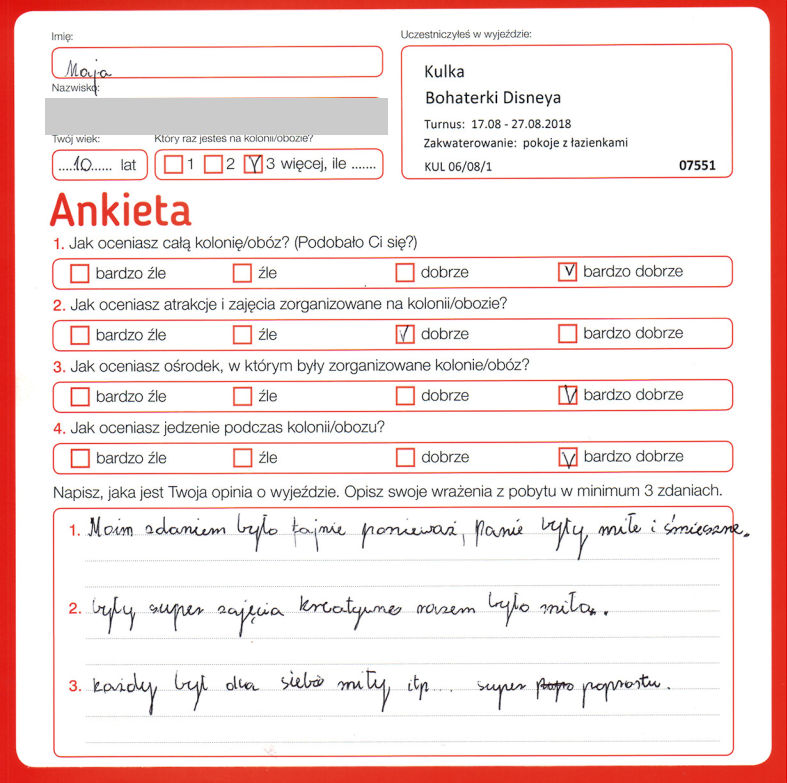 Imię:
Uczestniczyłeś w wyjeździe:
Maja
Kulka
Nazwisko:
Bohaterki Disneya
Turnus: 17.08 - 27.08.2018
Twój wiek:
Który raz jesteś na kolonii/obozie?
Zakwaterowanie: pokoje z łazienkami
.....10...... lat
1 2 3 więcej, ile .......
KUL 06/08/1 07551
Ankieta
1. Jak oceniasz całą kolonię/obóz? (Podobało Ci się?)
bardzo źle źle dobrze bardzo dobrze
2. Jak oceniasz atrakcje i zajęcia zorganizowane na kolonii/obozie?
bardzo źle źle dobrze bardzo dobrze
3. Jak oceniasz ośrodek, w którym były zorganizowane kolonie/obóz?
bardzo źle źle dobrze bardzo dobrze
4. Jak oceniasz jedzenie podczas kolonii/obozu?
bardzo źle źle dobrze bardzo dobrze
Napisz, jaka jest Twoja opinia o wyjeździe. Opisz swoje wrażenia z pobytu w minimum 3 zdaniach.
1. Moim zdaniem było fajnie ponieważ, Panie były, miłe i śmieszne.
2. były super zajęcia kreatywne razem było miło.
3. każdy był dla siebie miły, itp... super poprostu.